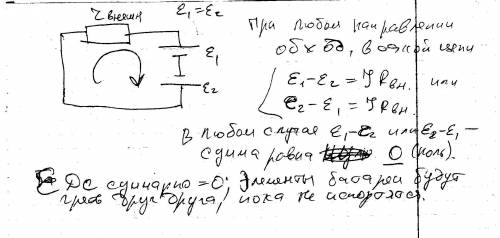 r внешн
ε1 = ε2
ε1
ε2
При любом направлении
обхода, в одной цепи
ε1 - ε2 = I Rвн. или
ε2 - ε1 = I Rвн.
В любом случае ε1 - ε2 или ε2 - ε1 -
сумма равна 0 (ноль).
ЭДС суммарно = 0; Элементы батареи будут
греть друг друга, пока не испортятся.